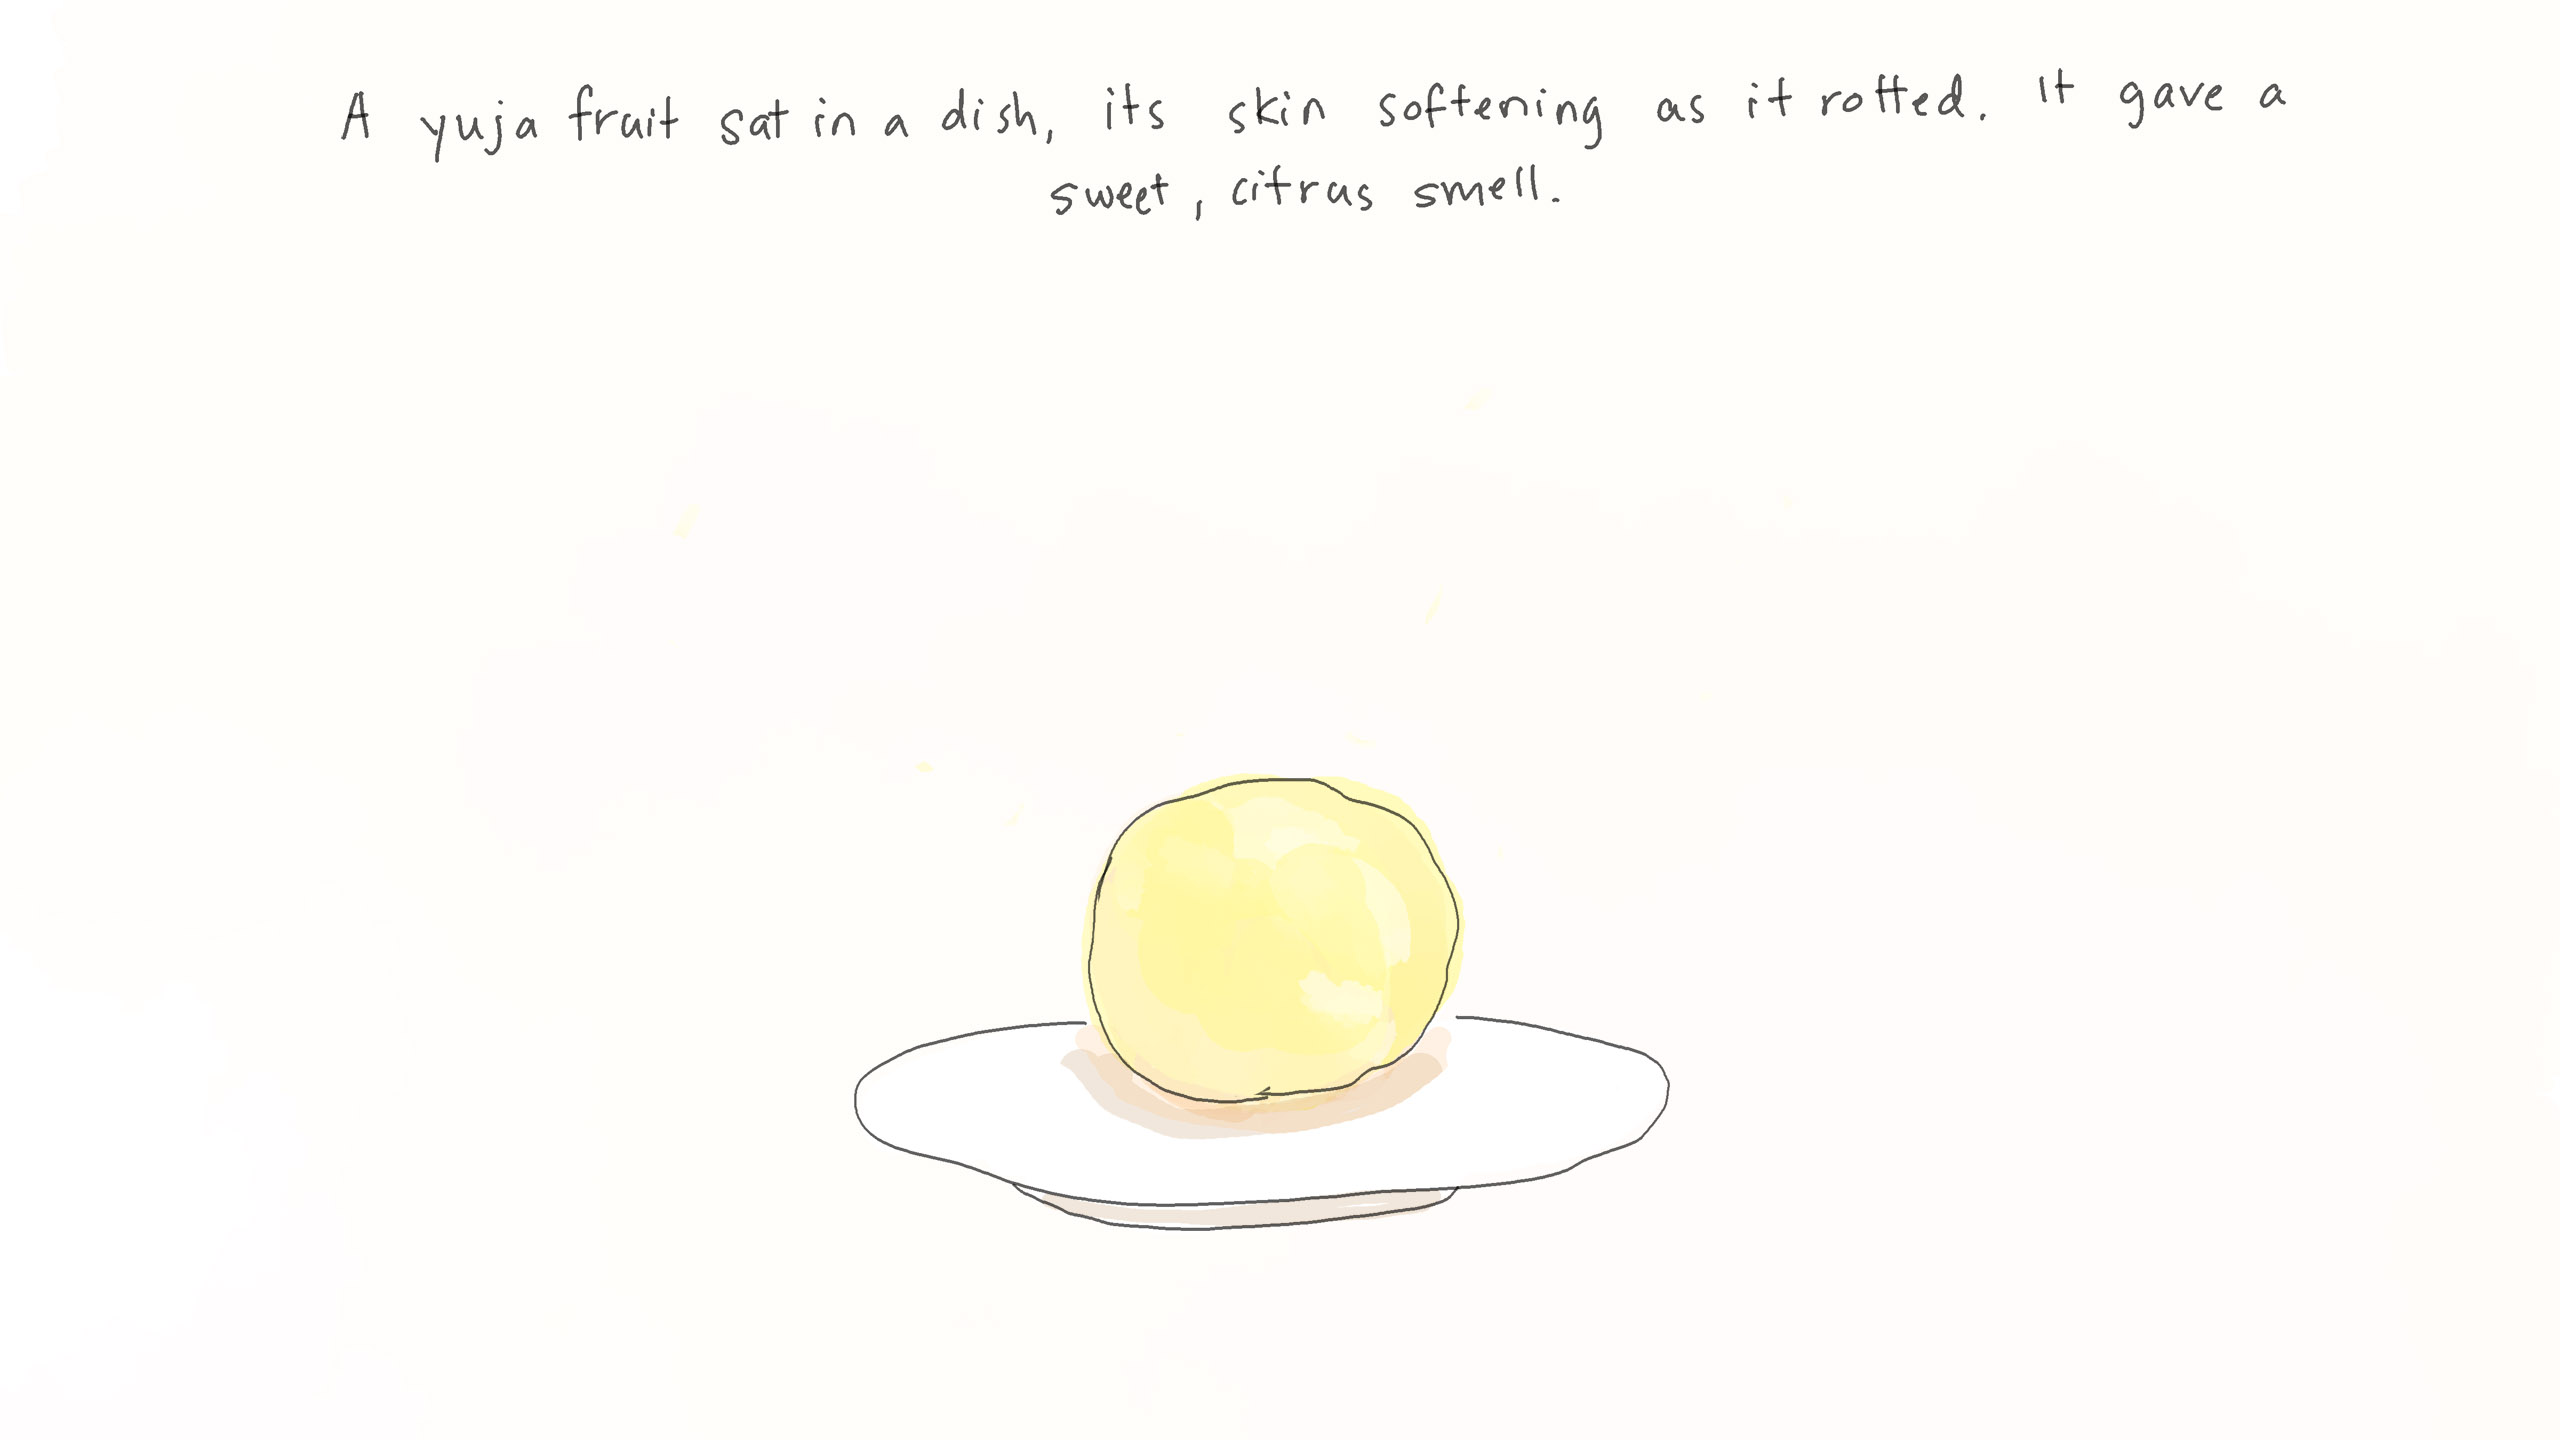 A yuja fruit sat in a dish, its skin softening as it rotted. It gave a
sweet, citrus smell.